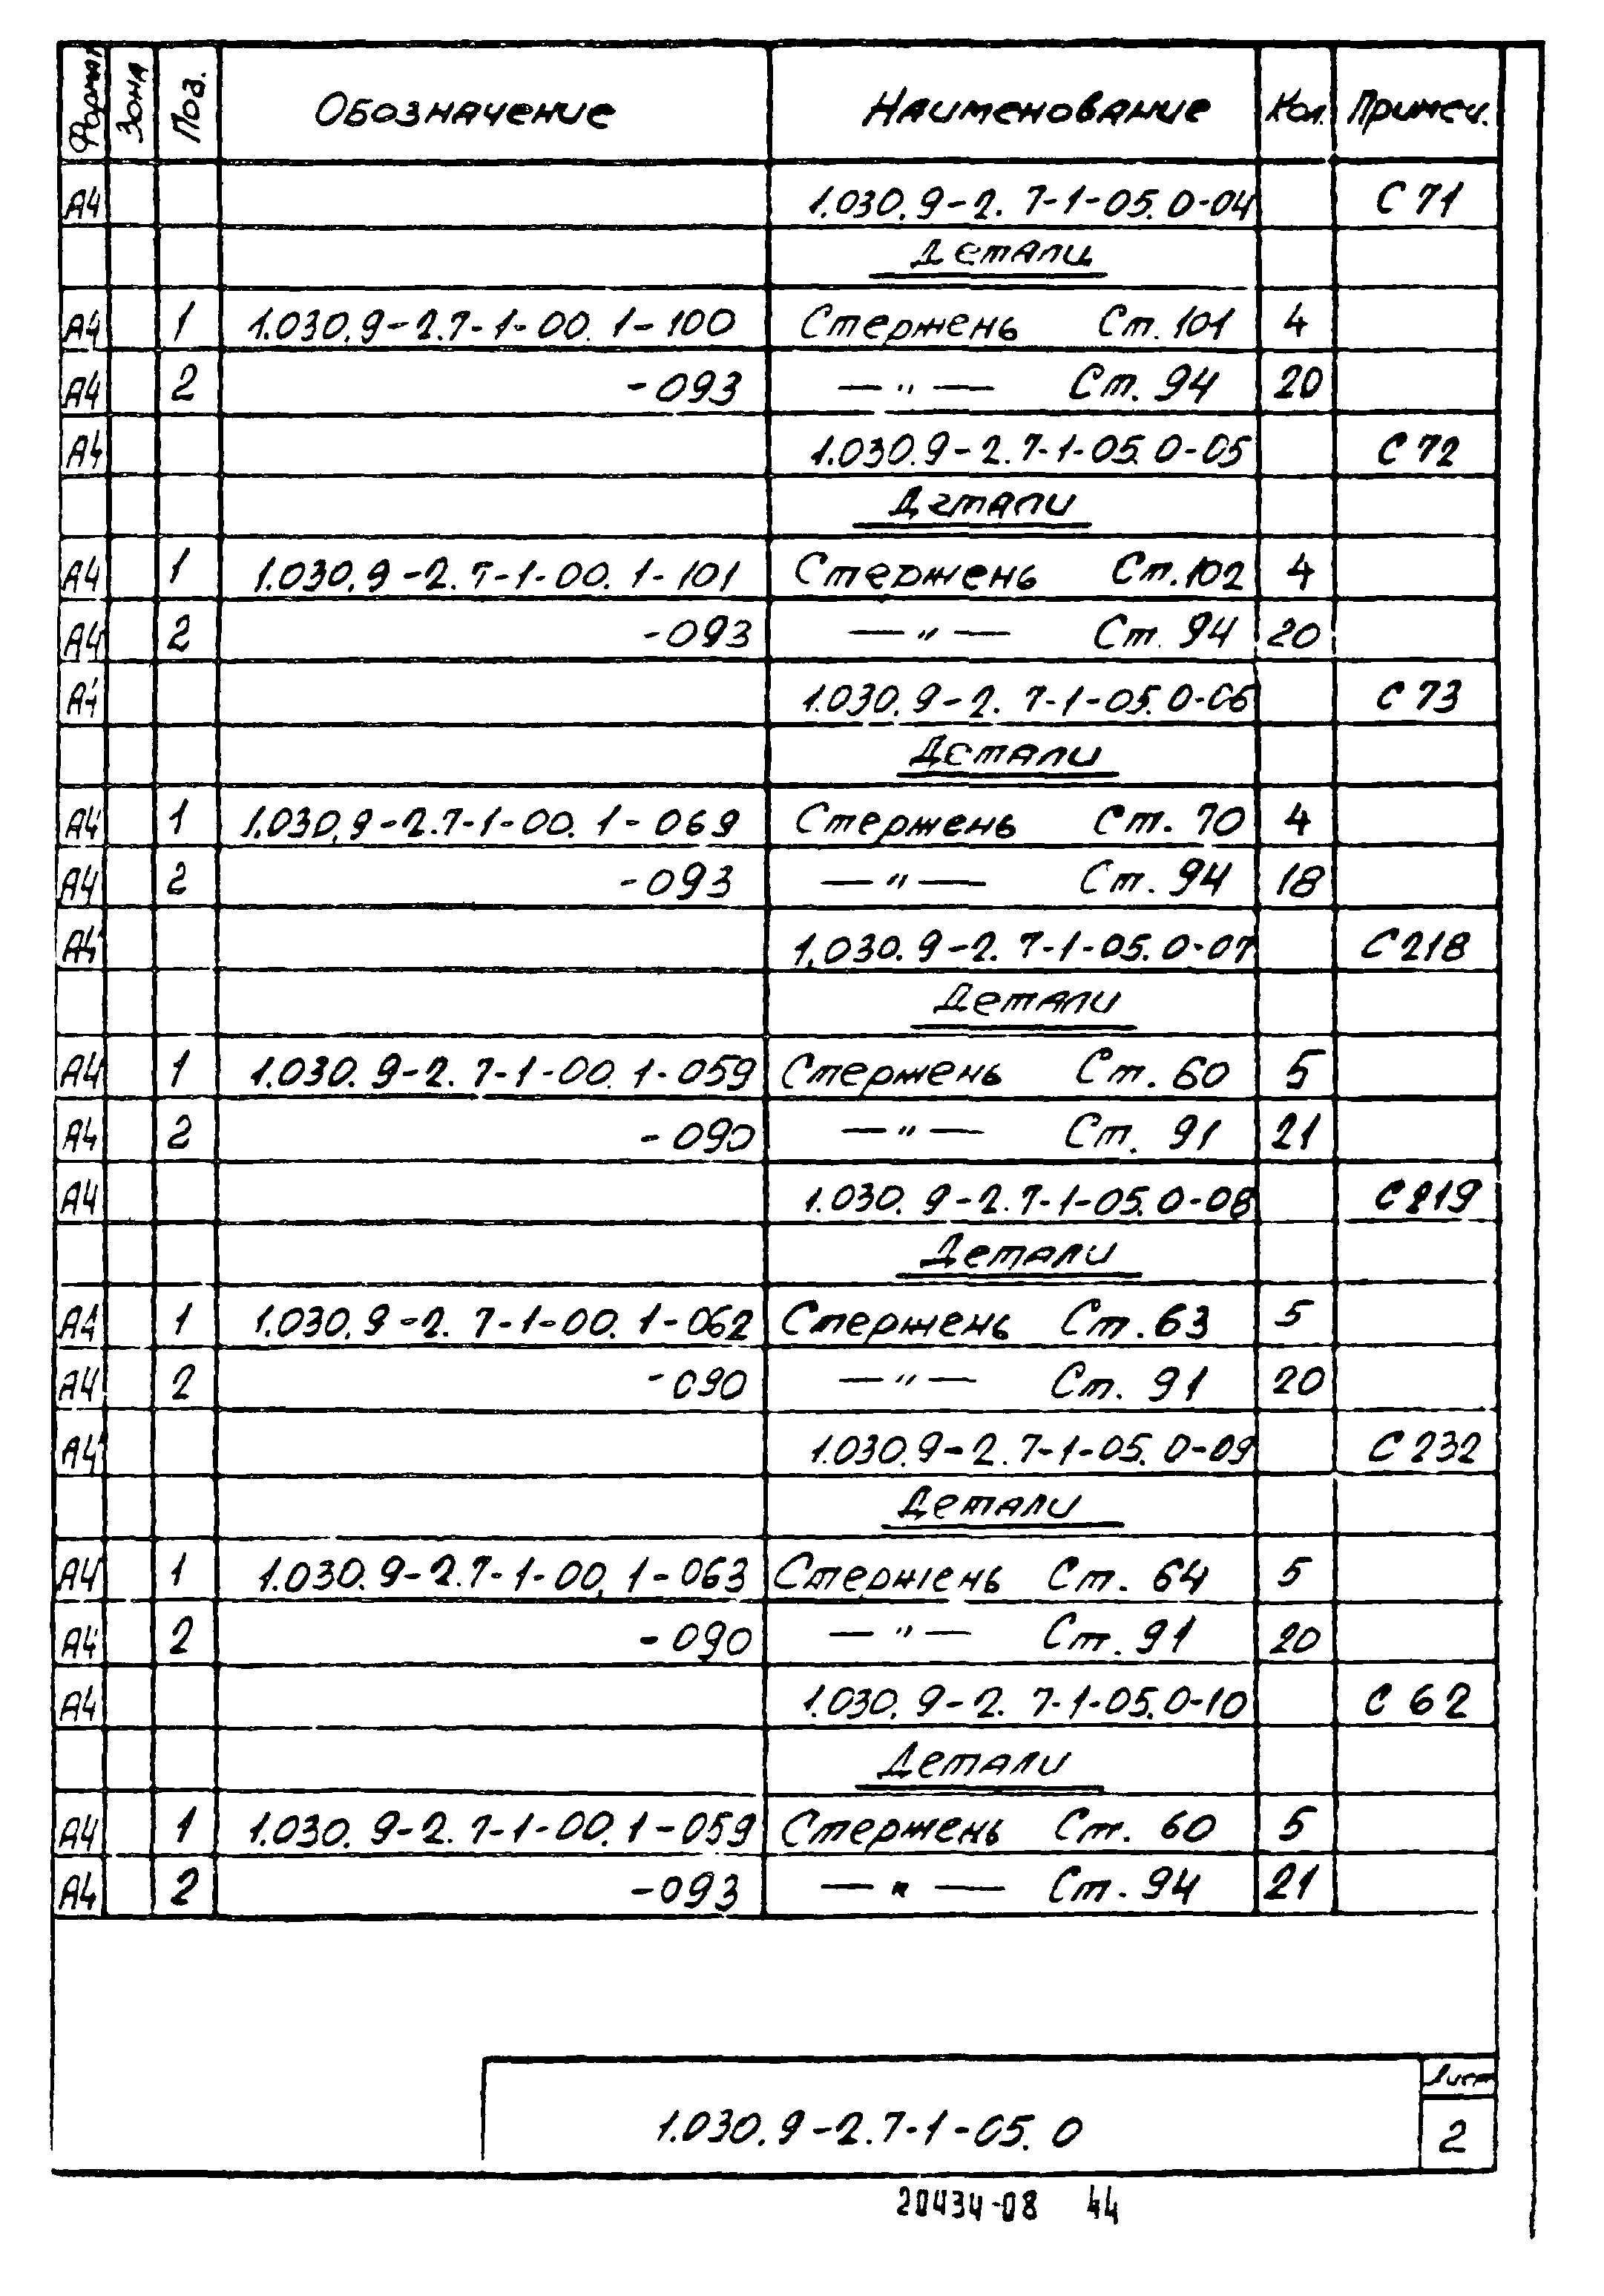 Формат Зона Поз. Обозначение Наименование Кол. Примеч.
А4 1.030.9-2.7-1-05.0-04 С 71
Детали
А4 1 1.030.9-2.7-1-00.1-100 Стержень Ст.101 4
А4 2 -093 —"— Ст.94 20
А4 1.030.9-2.7-1-05.0-05 С 72
Детали
А4 1 1.030.9-2.7-1-00.1-101 Стержень Ст.102 4
А4 2 -093 —"— Ст.94 20
А4 1.030.9-2.7-1-05.0-06 С 73
Детали
А4 1 1.030.9-2.7-1-00.1-069 Стержень Ст.70 4
А4 2 -093 —"— Ст.94 18
А4 1.030.9-2.7-1-05.0-07 С 218
Детали
А4 1 1.030.9-2.7-1-00.1-059 Стержень Ст.60 5
А4 2 -090 —"— Ст.91 21
А4 1.030.9-2.7-1-05.0-08 С 219
Детали
А4 1 1.030.9-2.7-1-00.1-062 Стержень Ст.63 5
А4 2 -090 —"— Ст.91 20
А4 1.030.9-2.7-1-05.0-09 С 232
Детали
А4 1 1.030.9-2.7-1-00.1-063 Стержень Ст.64 5
А4 2 -090 —"— Ст.91 20
А4 1.030.9-2.7-1-05.0-10 С 62
Детали
А4 1 1.030.9-2.7-1-00.1-059 Стержень Ст.60 5
А4 2 -093 —"— Ст.94 21
Лист
1.030.9-2.7-1-05.0 2
20434-08 44